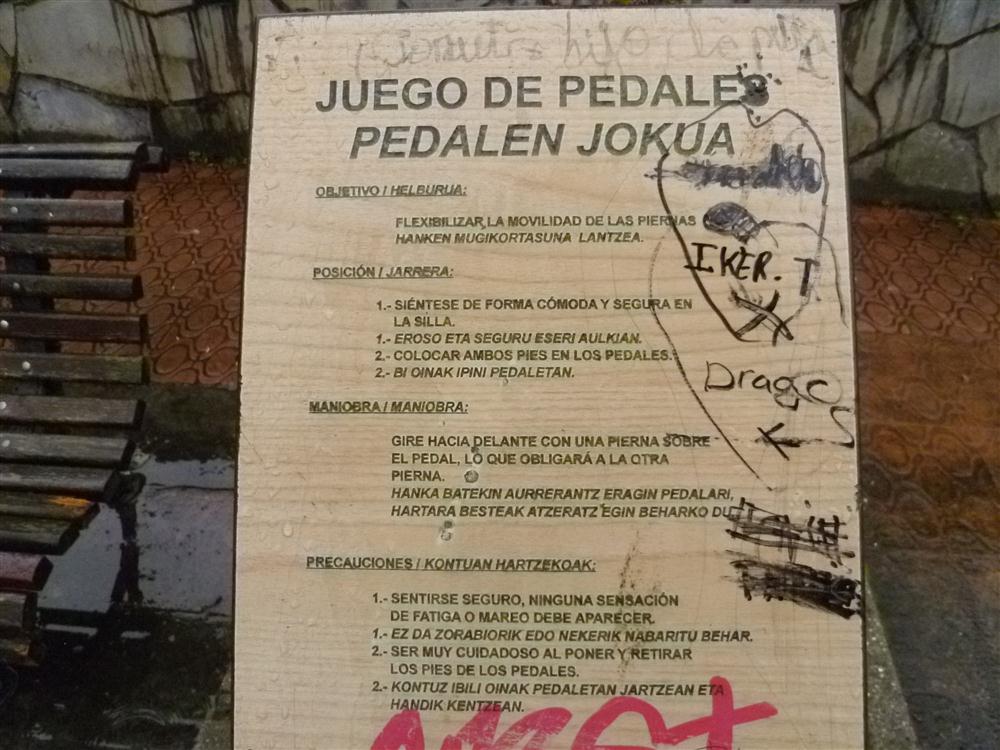 JUEGO DE PEDALES
PEDALEN JOKUA
OBJETIVO / HELBURUA:
FLEXIBILIZAR LA MOVILIDAD DE LAS PIERNAS
HANKEN MUGIKORTASUNA LANTZEA.
POSICIÓN / JARRERA:
1.- SIÉNTESE DE FORMA CÓMODA Y SEGURA EN
LA SILLA.
1.- EROSO ETA SEGURU ESERI AULKIAN.
2.- COLOCAR AMBOS PIES EN LOS PEDALES.
2.- BI OINAK IPINI PEDALETAN.
IKER. T
Dragos
MANIOBRA / MANIOBRA:
GIRE HACIA DELANTE CON UNA PIERNA SOBRE
EL PEDAL, LO QUE OBLIGARÁ A LA OTRA
PIERNA.
HANKA BATEKIN AURRERANTZ ERAGIN PEDALARI,
HARTARA BESTEAK ATZERATZ EGIN BEHARKO DU
PRECAUCIONES / KONTUAN HARTZEKOAK:
1.- SENTIRSE SEGURO, NINGUNA SENSACIÓN
DE FATIGA O MAREO DEBE APARECER.
1.- EZ DA ZORABIORIK EDO NEKERIK NABARITU BEHAR.
2.- SER MUY CUIDADOSO AL PONER Y RETIRAR
LOS PIES DE LOS PEDALES.
2.- KONTUZ IBILI OINAK PEDALETAN JARTZEAN ETA
HANDIK KENTZEAN.